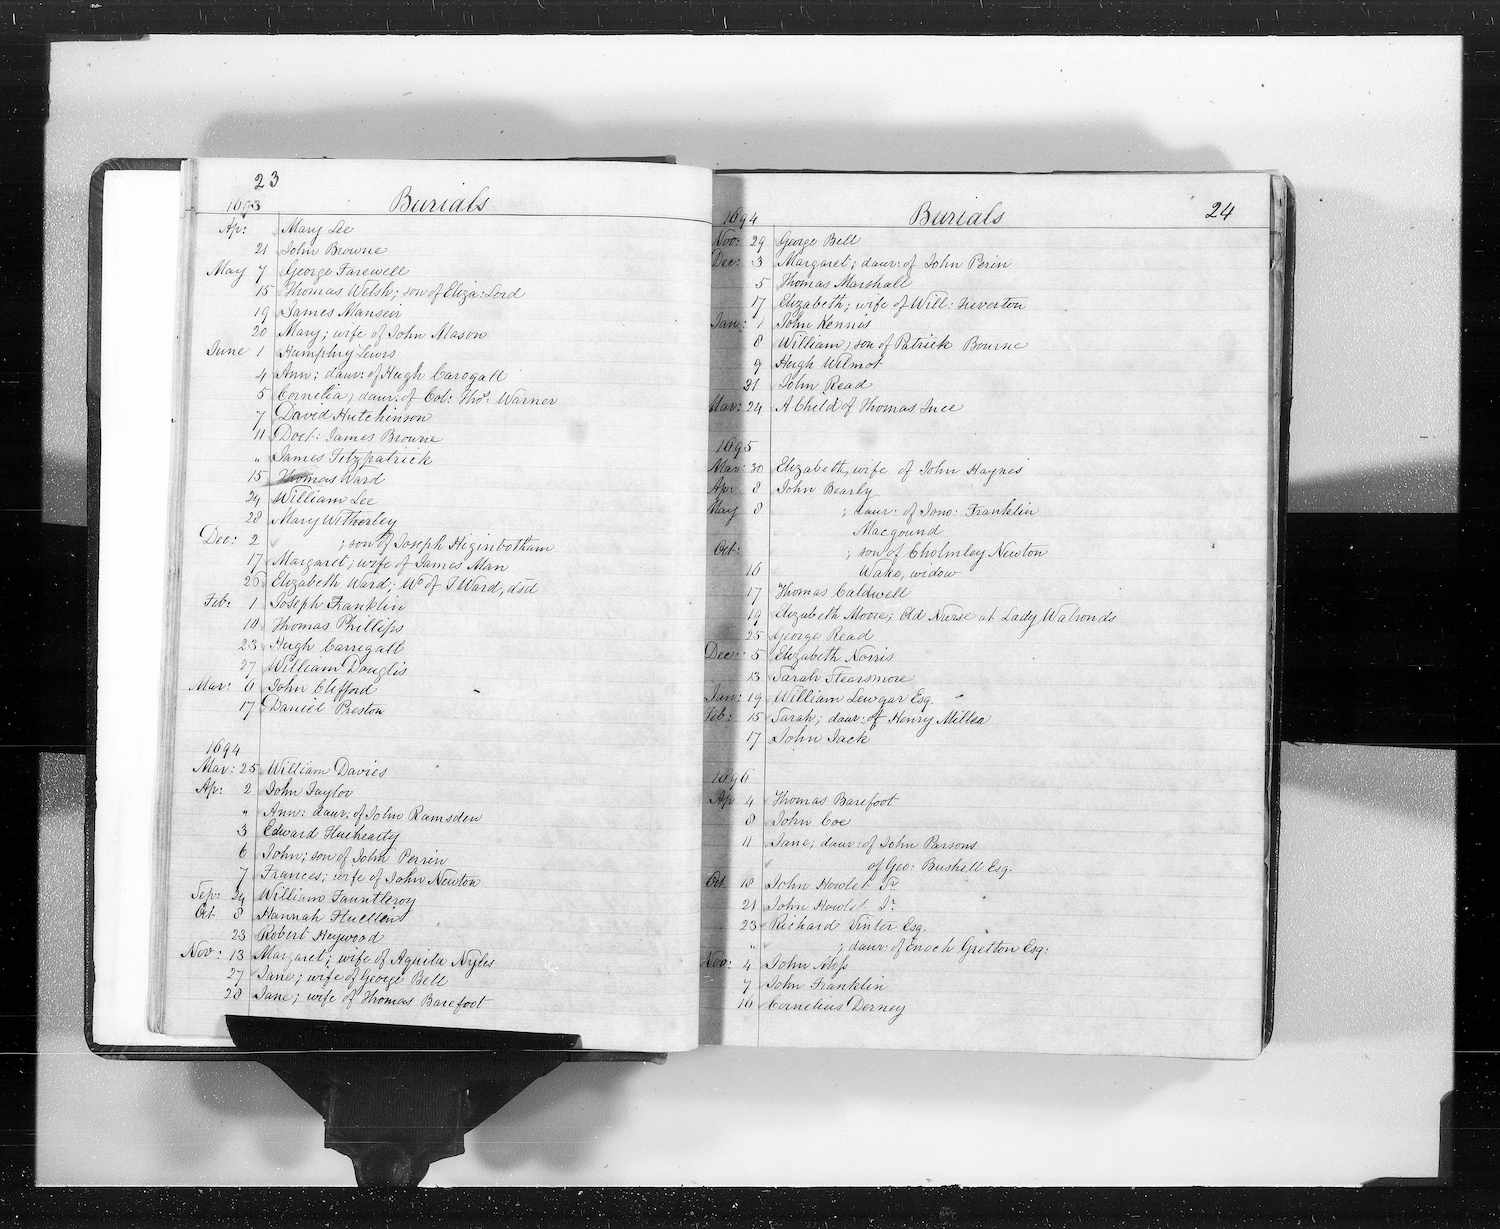 23
Burials
1693
Ap: Mary Lee
21 John Browne
May 7 George Farewell
15 Thomas Welsh; son of Eliza: Lord
19 James Manseir
20 Mary; wife of John Mason
June 1 Humphry Lewis
4 Ann: daur: of Hugh Carogall
5 Cornelia; daur: of Col: Thos. Warner
7 David Hutchinson
11 Doct: James Browne
" James Fitzpatrick
15 Thomas Ward
24 William Lee
28 Mary Witherley
Dec: 2 ; son of Joseph Higinbotham
17 Margaret; wife of James Man
26 Elizabeth Ward; Wo of J Ward, dsd
Feb: 1 Joseph Franklin
10 Thomas Phillips
23 Hugh Carrigall
27 William Douglis
Mar: 6 John Clifford
17 Daniel Preston
1694
Mar: 25 William Davies
Ap: 2 John Taylor
" Ann: daur: of John Ramsden
3 Edward
6 John; son of John Perrin
7 Frances; wife of John Newton
Sep: 24 William Fauntleroy
Oct 8 Hannah Fluellen
23 Robert Heywood
Nov: 13 Margaret; wife of Aquila Nyles
27 Jane; wife of George Bell
28 Jane; wife of Thomas Barefoot
24
Burials
1694
Nov: 29 George Bell
Dec: 3 Margaret; daur: of John Perin
5 Thomas Marshall
17 Elizabeth; wife of Will: Liverton
Jan: 1 John Kennis
8 William; son of Patrick Bourne
9 Hugh Wilmot
21 John Read
Mar: 24 A Child of Thomas Ince
1695
Mar: 30 Elizabeth, wife of John Haynes
Apr 8 John Bearly
May 8 ; daur: of Jono: Franklin
Macgound
Oct: ; son of Cholmley Newton
16 Wake, widow
17 Thomas Caldwell
19 Elizabeth Moore; Old Nurse at Lady Walronds
25 George Read
Dec: 5 Elizabeth Norris
13 Sarah Stearsmore
Jan: 19 William Lewgar Esq.
Feb: 15 Sarah; daur: of Henry Miller
17 John Jack
1696
Ap 4 Thomas Barefoot
8 John Coe
11 Jane; daur: of John Parsons
" of Geo: Bushell Esq.
Oct 18 John Howlet Sr.
21 John Howlet Jr.
23 Richard Vinter Esq.
" ; daur: of Enoch Gretton Esq:
Nov: 4 John
7 John Franklin
16 Cornelius Dorney